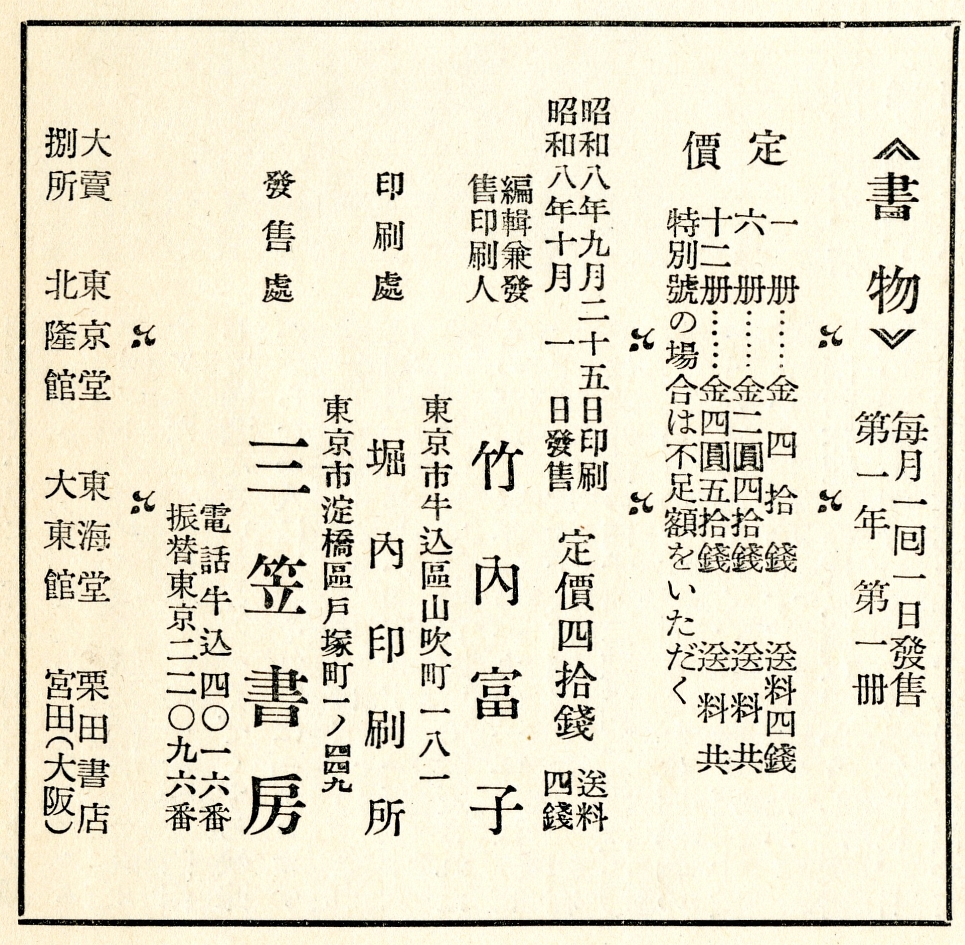 《書物》
每月一回一日發售
第一年 第一册
定價
一册……金四拾錢 送料四錢
六册……金二圓四拾錢 送料共
十二册……金四圓五拾錢 送料共
特別號の場合は不足額をいただく
昭和八年九月二十五日印刷
昭和八年十月一日發售
定價四拾錢
送料
四錢
編輯兼發
售印刷人
竹內富子
東京市牛込區山吹町一八一
印刷處
堀內印刷所
東京市淀橋區戶塚町一ノ四四九
發售處
三笠書房
電話牛込四〇一六番
振替東京二二〇九六番
大賣
捌所
東京堂 東海堂 栗田書店
北隆館 大東館 宮田(大阪)